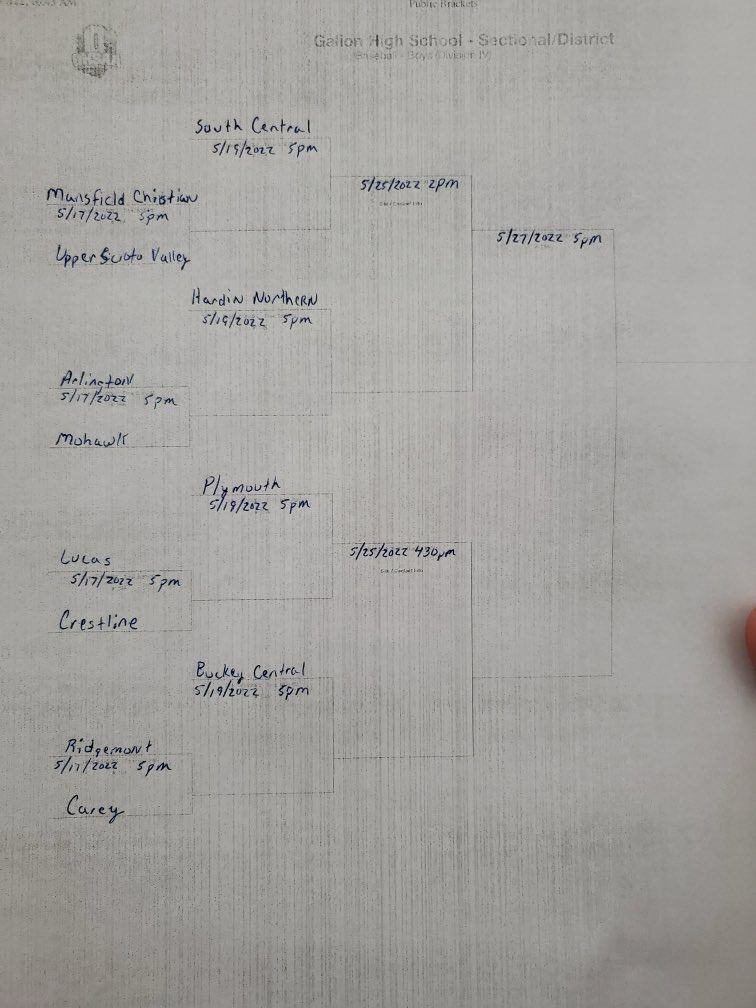 Public Brackets
Galion High School - Sectional/District
Baseball - Boys (Division IV)
South Central
5/19/2022 5pm
5/25/2022 2pm
Mansfield Christian
5/17/2022 5pm
5/27/2022 5pm
Upper Scioto Valley
Hardin Northern
5/19/2022 5pm
Arlington
5/17/2022 5pm
Mohawk
Plymouth
5/19/2022 5pm
5/25/2022 430pm
Lucas
5/17/2022 5pm
Crestline
Buckey Central
5/19/2022 5pm
Ridgemont
5/17/2022 5pm
Carey